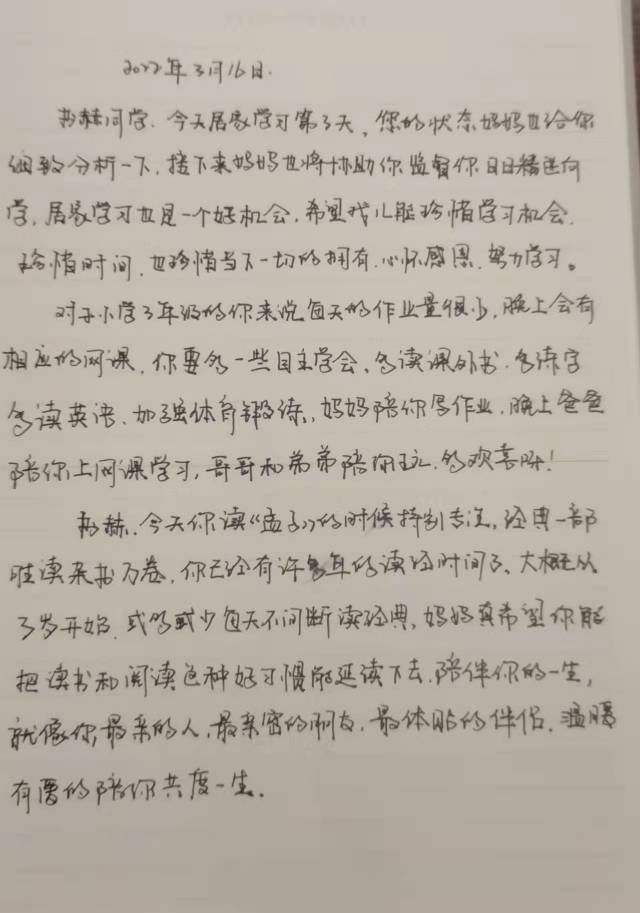 2022年3月16日.
赫同学.今天居家学习第3天,您的状态妈妈也给你
细致分析一下,接下来妈妈也将协助你监督你日日精进向
学,居家学习也是一个好机会,希望我儿能珍惜学习机会.
珍惜时间,也珍惜当下一切的拥有.心怀感恩.努力学习。
对于小学3年级的你来说每天的作业量很少,晚上会有
相应的网课,你要多一些自主学会、多读课外书.多练字
多读英语.加强体育锻练,妈妈陪你写作业,晚上爸爸
陪你上网课学习,哥哥和弟弟陪伴玩.多欢喜呀!
赫,今天你读《孟子》的时候特别专注,经典一部
胜读杂书万卷,你已经有许多年的读经时间了、大概从
3岁开始.或多或少每天不间断读经典,妈妈真希望你能
把读书和阅读这种好习惯能延读下去.陪伴你的一生,
就像你最亲的人,最亲密的朋友.最体贴的伴侣.温暖
有的陪你共度一生.